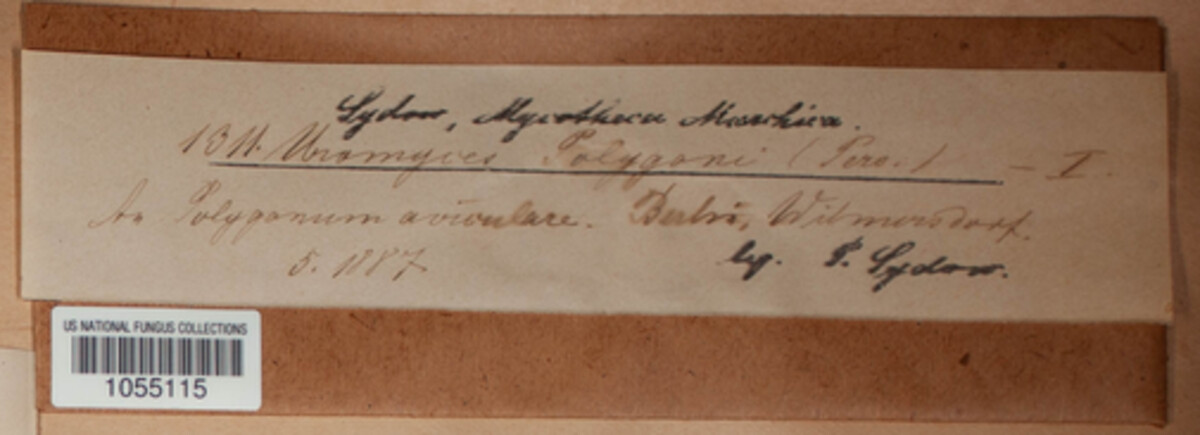 Sydow, Mycotheca Marchica.
1311. Uromyces Polygoni (Pers.) — I.
An Polygonum aviculare. Berlin, Wilmersdorf.
5. 1887 lg. P. Sydow.
US NATIONAL FUNGUS COLLECTIONS
1055115